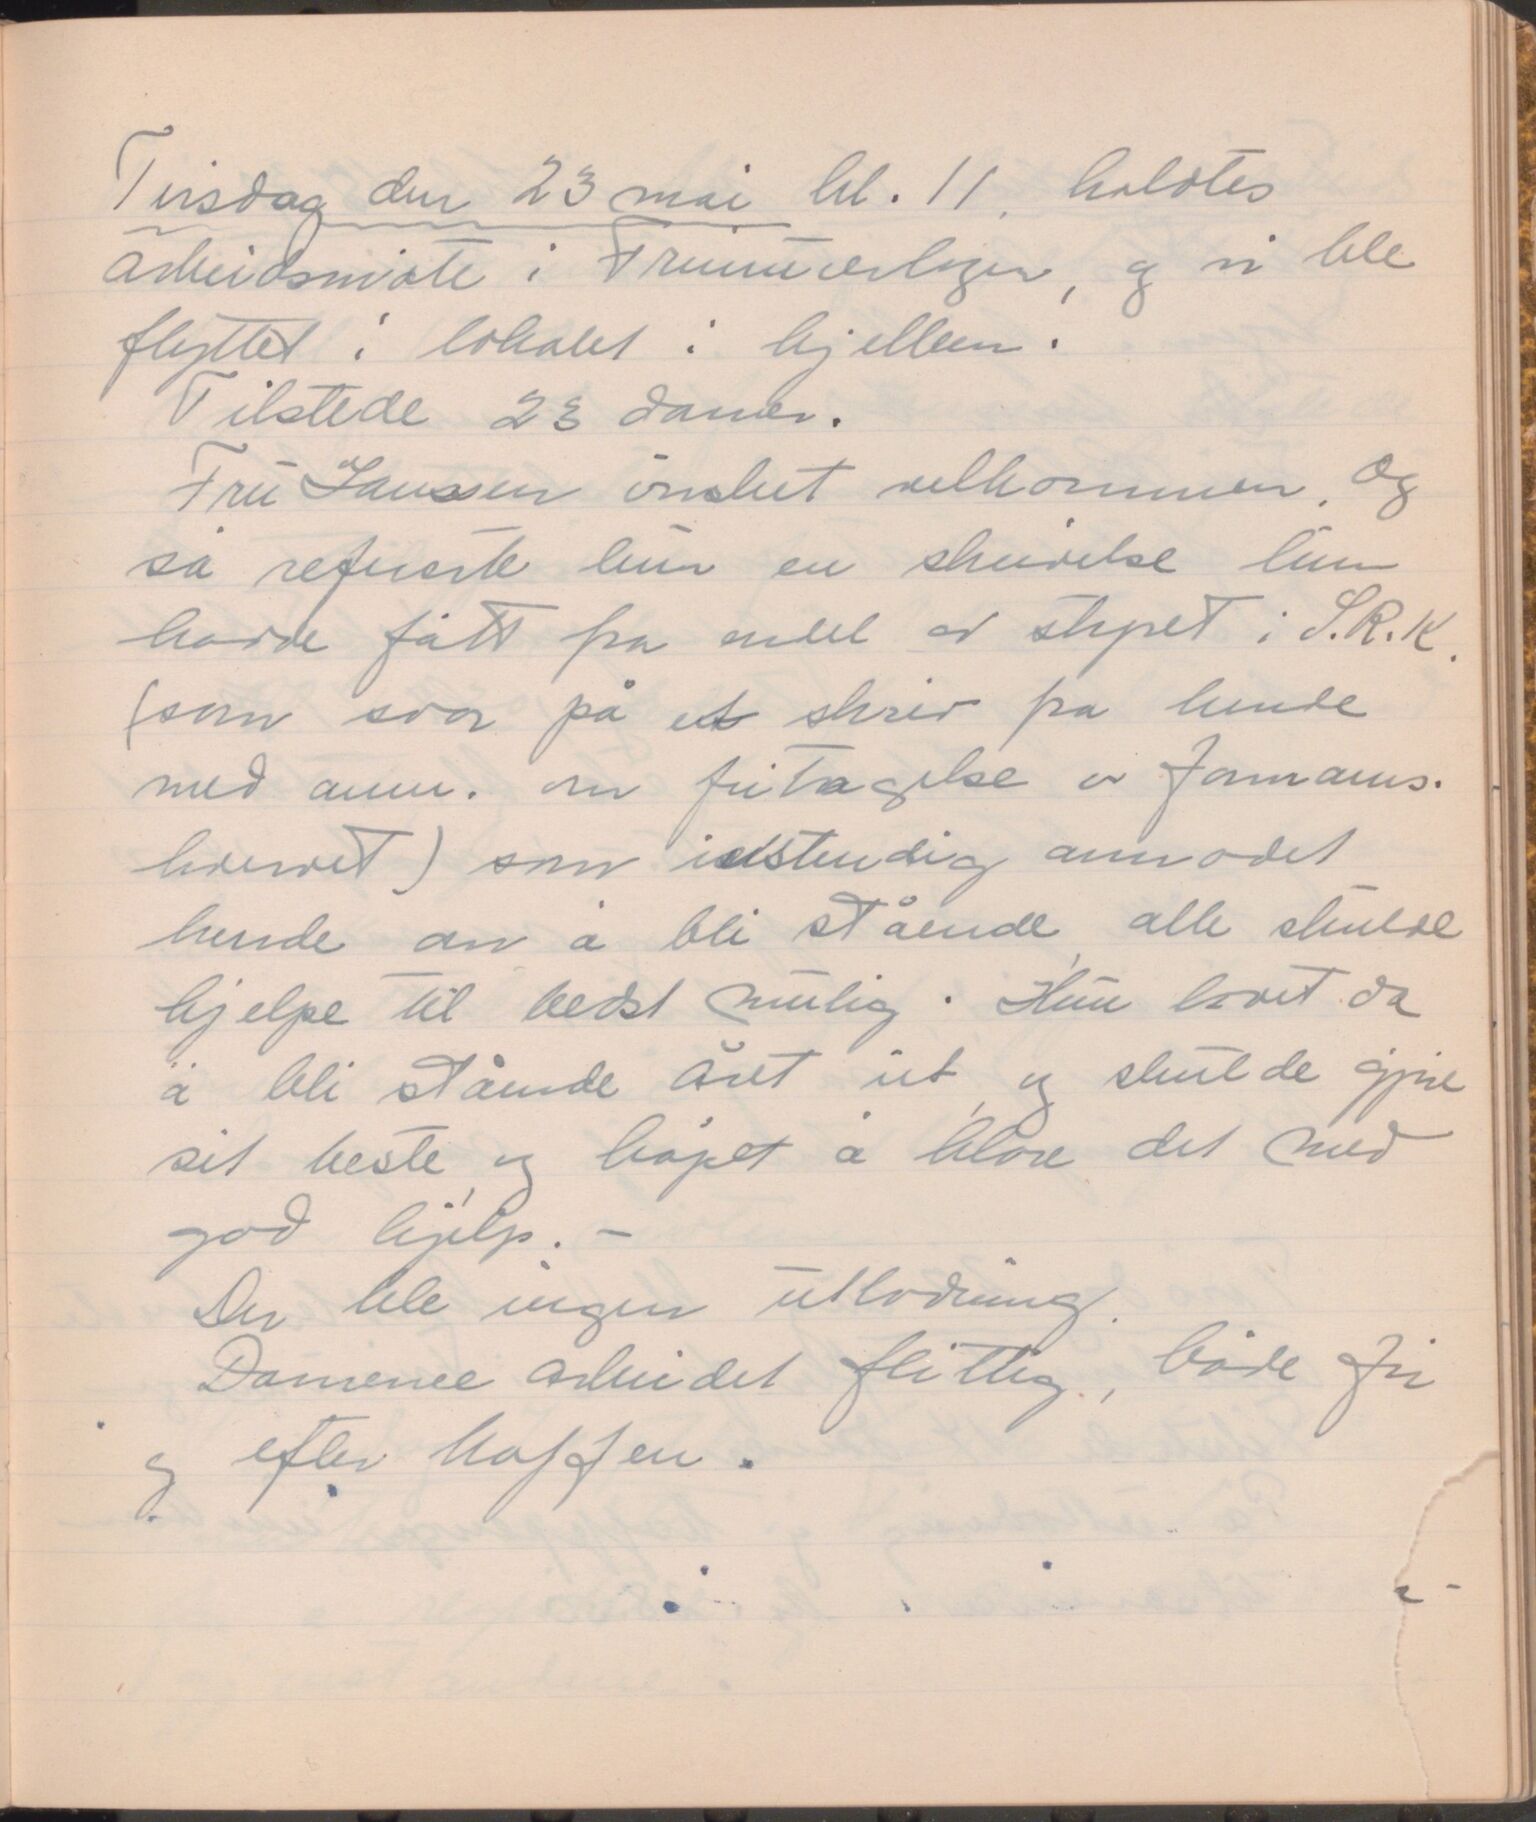 Tirsdag den 23 mai kl. 11. holdtes
arbeidsmøte i Frimurerlogen, og vi ble
flyttet i lokalet i kjelleren.
Tilstede 23 damer.
Fru Janssen ønsket velkommen. Og
så refererte hun en skrivelse hun
hadde fått fra endel av styret i S.R.K.
(som svar på et skriv fra hende
med anm. om fritagelse av formans-
hvervet) som instendig anmodet
hende om å bli stående, alle skulde
hjelpe til bedst mulig. Hun lovet da
å bli stående året ut, og skulde gjøre
sit beste, og håpet å klare det med
god hjelp. -
Der ble ingen utlodning.
Damene arbeidet flittig, både før
og efter kaffen.